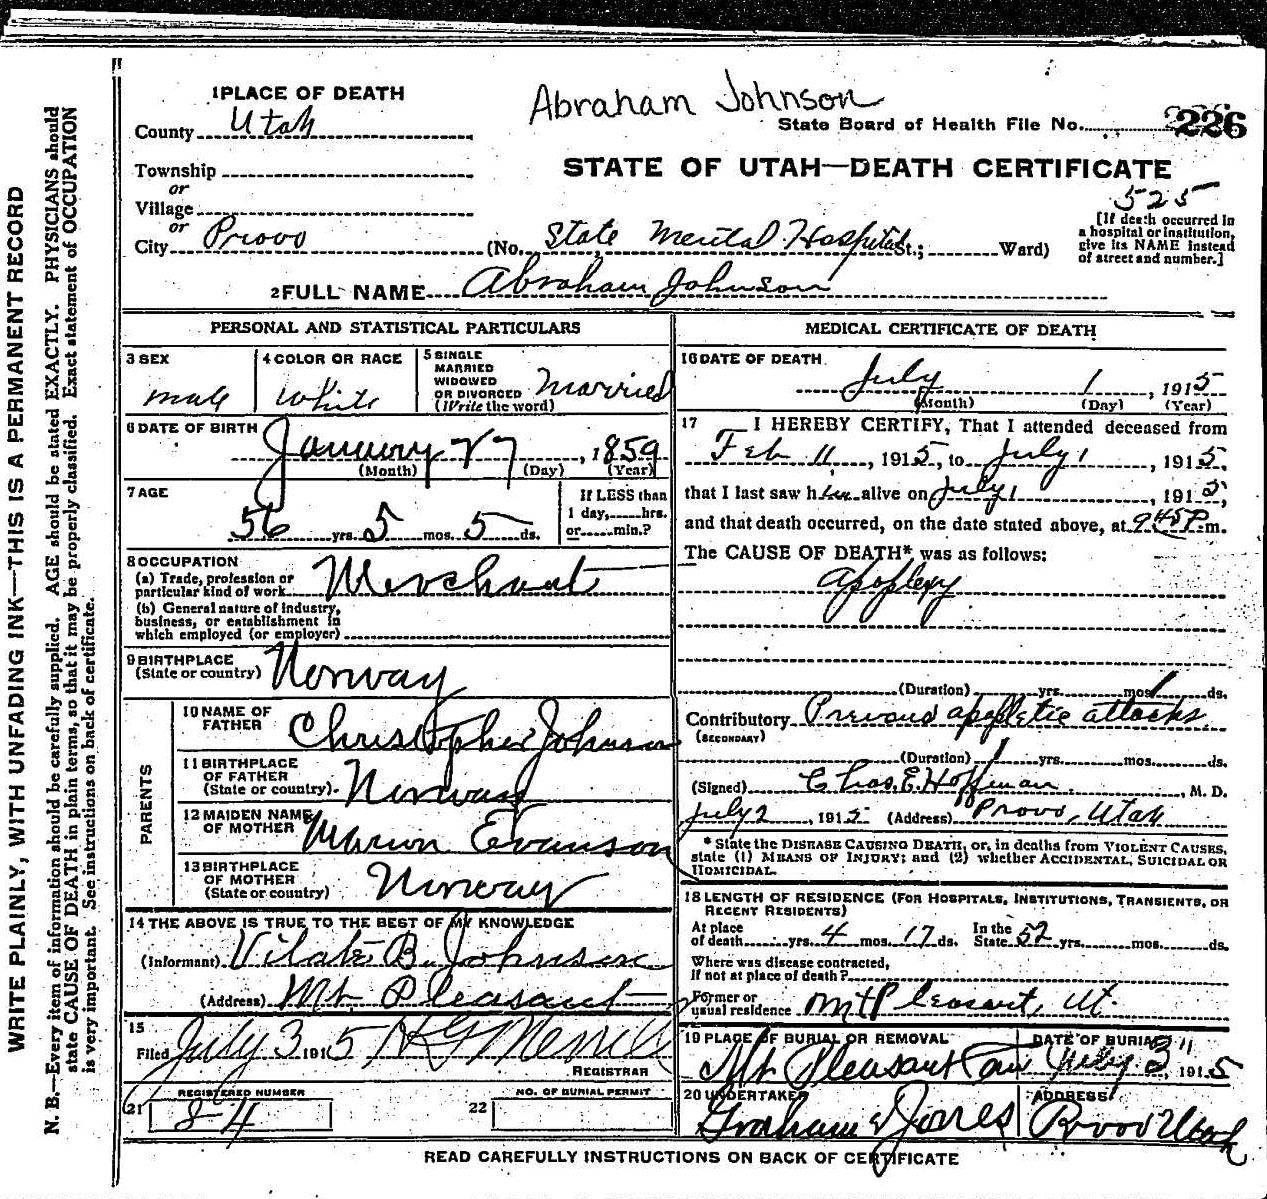 Abraham Johnson
1 PLACE OF DEATH
County Utah
State Board of Health File No. 226
Township
or
Village
or
City Provo (No. State Mental Hospital St.; Ward)
STATE OF UTAH—DEATH CERTIFICATE
525
[If death occurred in
a hospital or institution,
give its NAME instead
of street and number.]
2 FULL NAME Abraham Johnson
PERSONAL AND STATISTICAL PARTICULARS
3 SEX
male
4 COLOR OR RACE
White
5 SINGLE
MARRIED
WIDOWED
OR DIVORCED
(Write the word)
Married
6 DATE OF BIRTH
January 27, 1859
(Month) (Day) (Year)
7 AGE
56 yrs. 5 mos. 5 ds.
If LESS than
1 day, hrs.
or min.?
8 OCCUPATION
(a) Trade, profession or
particular kind of work Merchant
(b) General nature of industry,
business, or establishment in
which employed (or employer)
9 BIRTHPLACE
(State or country) Norway
PARENTS
10 NAME OF
FATHER Christopher Johnson
11 BIRTHPLACE
OF FATHER
(State or country) Norway
12 MAIDEN NAME
OF MOTHER Marion Evanson
13 BIRTHPLACE
OF MOTHER
(State or country) Norway
14 THE ABOVE IS TRUE TO THE BEST OF MY KNOWLEDGE
(Informant) Vilate B. Johnson
(Address) Mt Pleasant
15
Filed July 3 1915 Merrill
REGISTRAR
REGISTERED NUMBER
21 84
NO. OF BURIAL PERMIT
22
MEDICAL CERTIFICATE OF DEATH
16 DATE OF DEATH
July 1, 1915
(Month) (Day) (Year)
17 I HEREBY CERTIFY, That I attended deceased from
Feb 11, 1915, to July 1, 1915,
that I last saw him alive on July 1, 1915,
and that death occurred, on the date stated above, at 9 45 P. m.
The CAUSE OF DEATH* was as follows:
Apoplexy
(Duration) yrs. mos. 1 ds.
Contributory Previous apoplectic attacks
(SECONDARY)
(Duration) 1 yrs. mos. ds.
(Signed) Chas. E. Hoffman, M. D.
July 2, 1915 (Address) Provo, Utah
* State the DISEASE CAUSING DEATH, or, in deaths from VIOLENT CAUSES,
state (1) MEANS OF INJURY; and (2) whether ACCIDENTAL, SUICIDAL OR
HOMICIDAL.
18 LENGTH OF RESIDENCE (FOR HOSPITALS, INSTITUTIONS, TRANSIENTS, OR
RECENT RESIDENTS)
At place
of death yrs. 4 mos. 17 ds. In the
State 52 yrs. mos. ds.
Where was disease contracted,
if not at place of death?
Former or
usual residence Mt Pleasant, Ut
19 PLACE OF BURIAL OR REMOVAL
Mt Pleasant
DATE OF BURIAL
July 3", 1915
20 UNDERTAKER
Graham & Jones
ADDRESS
Provo Utah
READ CAREFULLY INSTRUCTIONS ON BACK OF CERTIFICATE
WRITE PLAINLY, WITH UNFADING INK—THIS IS A PERMANENT RECORD
N. B.—Every item of information should be carefully supplied. AGE should be stated EXACTLY. PHYSICIANS should
state CAUSE OF DEATH in plain terms, so that it may be properly classified. Exact statement of OCCUPATION
is very important. See instructions on back of certificate.